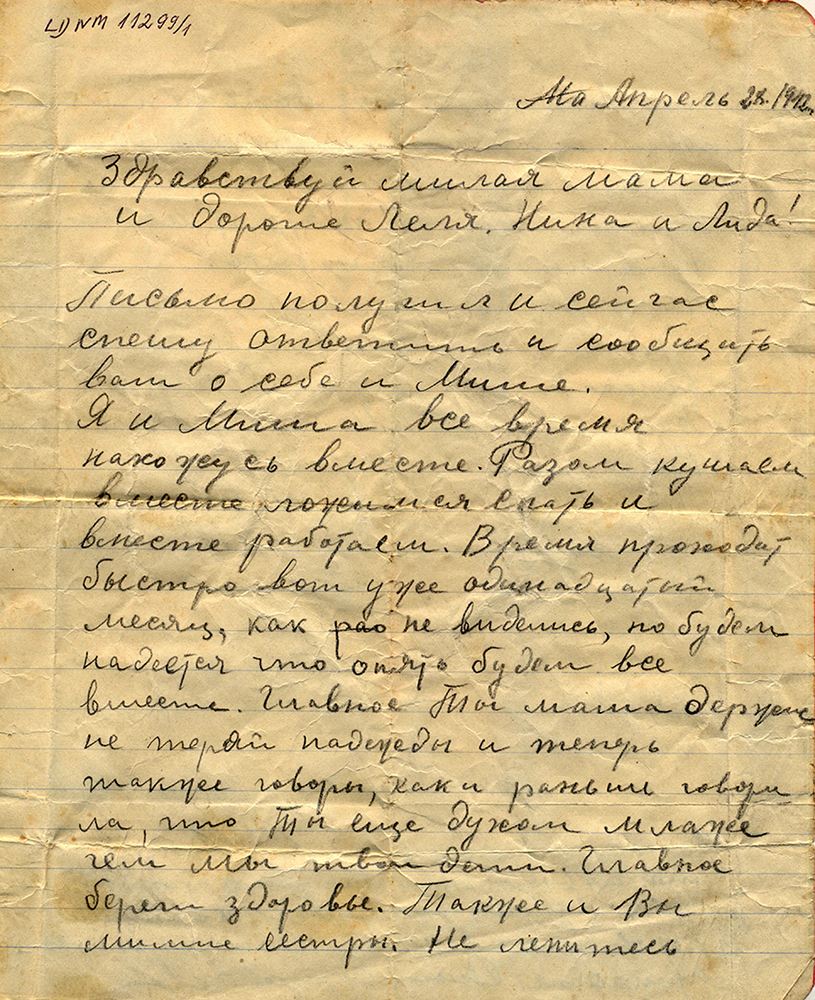 LDNM 11299/1
Апрель 28. 1942
Здравствуй милая мама
и дорогие Леля, Нина и Лида!
Письмо получил и сейчас
спешу ответить и сообщить
вам о себе и Мише.
Я и Миша все время
нахожусь вместе. Разом кушаем
вместе ложимся спать и
вместе работаем. Время проходат
быстро вот уже одинадцатый
месяц, как не виделись, но будем
надеется что опять будем все
вместе. Главное Ты мама держись
не теряй надежды и теперь
также говоры, как и раньше говори
ла, что Ты еще духом млаже
чем мы твои дети. Главное
береги здоровье. Также и Вы
милые сестры. Не ленитесь